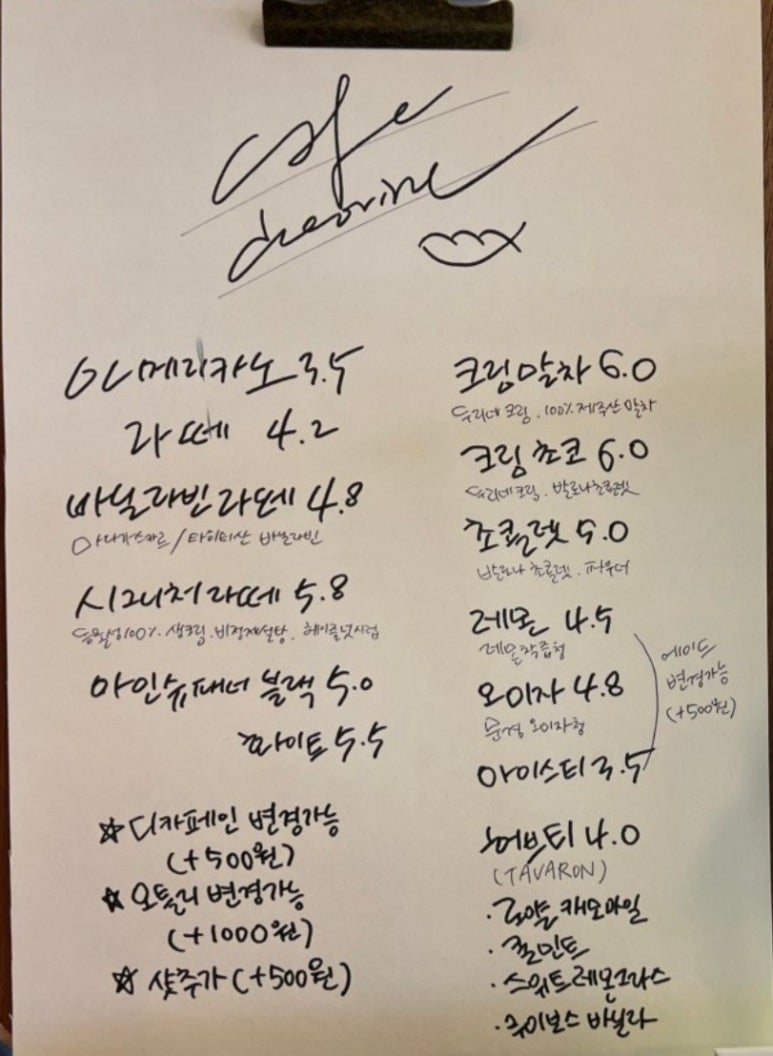 cafe
아메리카노 3.5
라떼 4.2
바닐라빈라떼 4.8
마다가스카르/타히티산 바닐라빈
시그니처라떼 5.8
동물성100% 생크림.비정제설탕. 헤이즐넛시럽
아인슈패너 블랙 5.0
화이트 5.5
☆ 디카페인 변경가능
(+500원)
☆ 오틀리 변경가능
(+1000원)
☆ 샷추가 (+500원)
크림말차 6.0
크림. 100% 제주산 말차
크림 초코 6.0
크림. 발로나초콜렛
초콜렛 5.0
발로나 초콜렛. 파우더
레몬 4.5
레몬착즙청
오미자 4.8
문경 오미자청
아이스티 3.5
에이드
변경가능
(+500원)
허브티 4.0
(TAVARON)
· 로얄 캐모마일
· 쿨민트
· 스위트레몬그라스
· 루이보스 바닐라